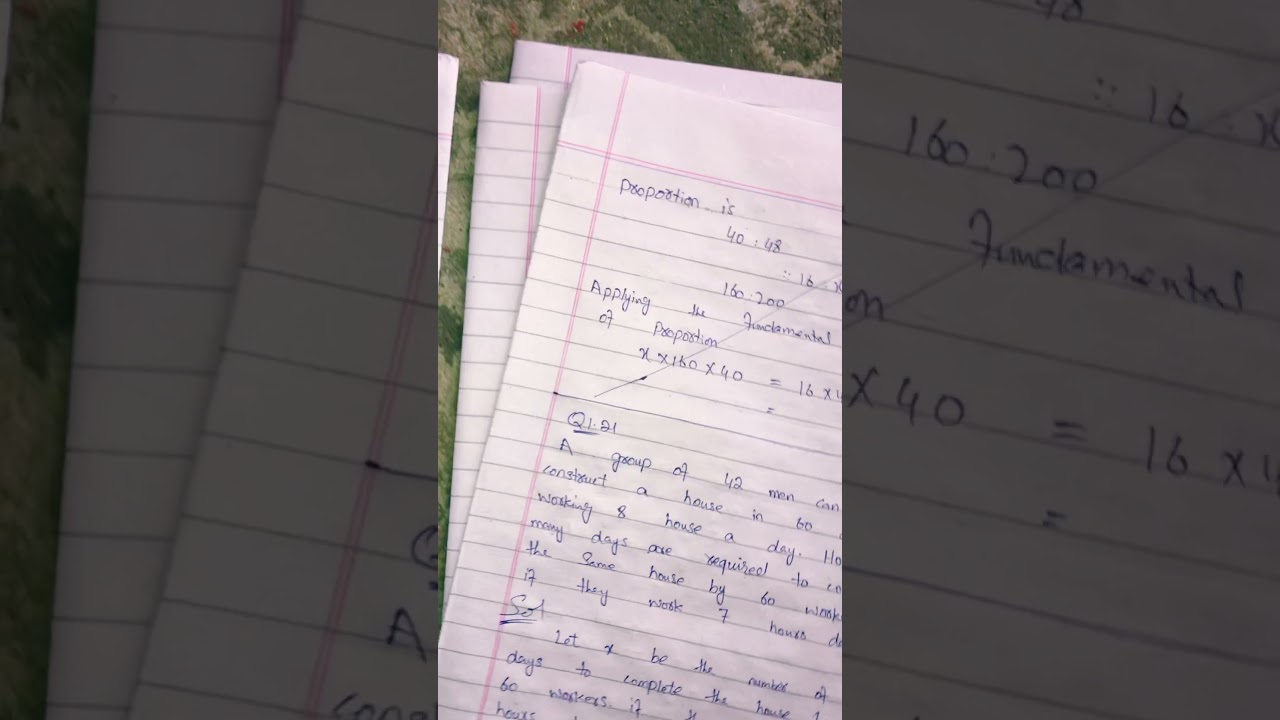 proportion is
40 : 48
:: 16 : x
160 : 200
Applying the Fundamental
of proportion
x × 160 × 40 = 16 × 4
=
Q1.21
A group of 42 men can
construct a house in 60
working 8 house a day. Ho
many days are required to co
the same house by 60 work
if they work 7 hours da
Sol
Let x be the number of
days to complete the house
60 workers. if
hours